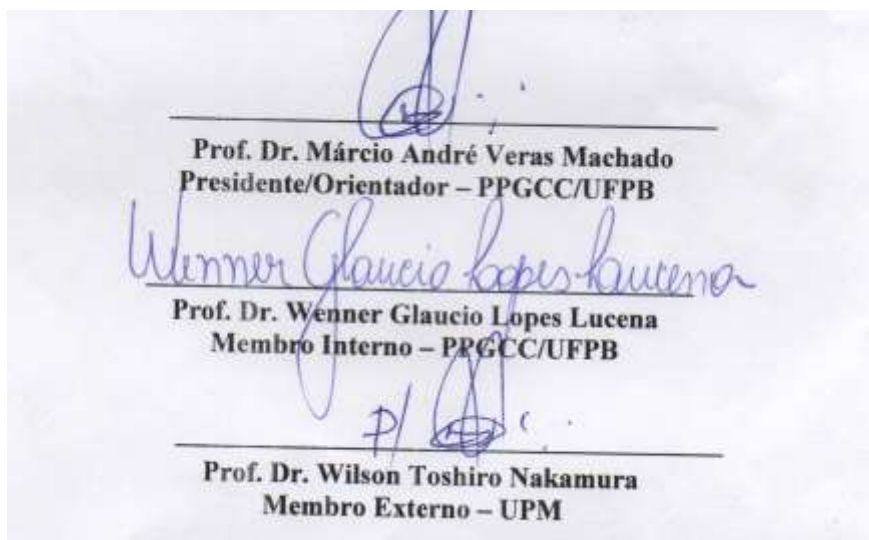 Prof. Dr. Márcio André Veras Machado
Presidente/Orientador – PPGCC/UFPB
Wenner Glaucio Lopes Lucena
Prof. Dr. Wenner Glaucio Lopes Lucena
Membro Interno – PPGCC/UFPB
P/
Prof. Dr. Wilson Toshiro Nakamura
Membro Externo – UPM